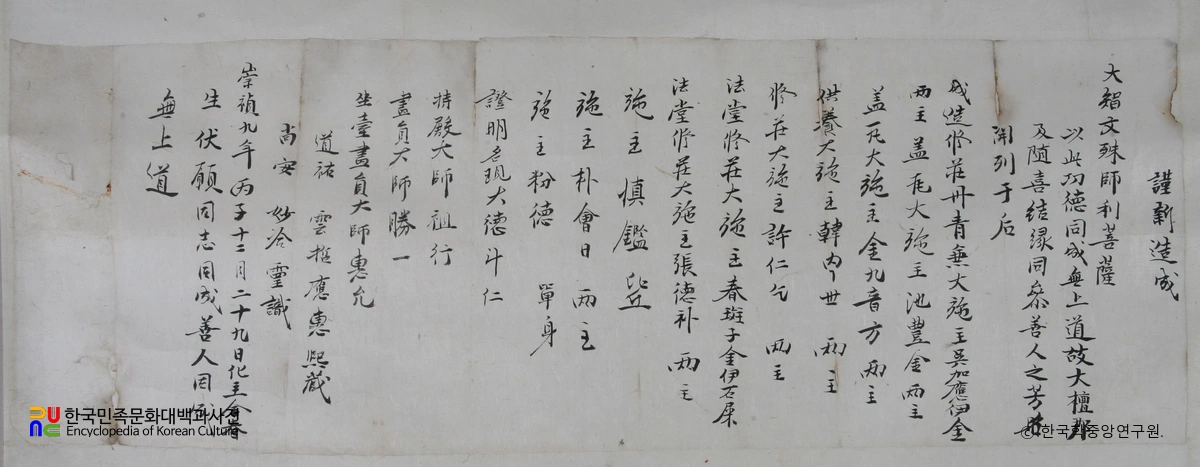 謹新造成
大智文殊師利菩薩
以此功德同成無上道故大檀那
及随喜結縁同叅善人之芳
開列于后
成造修莊丹青兼大施主吳加應伊金
兩主 盖瓦大施主池豊金兩主
盖瓦大施主金九音方 兩主
供養大施主韓 世 兩主
修莊大施主許仁 兩主
法堂修莊大施主春斑子金伊石屎
法堂修莊大施主張德补 兩主
施主慎鑑
施主朴會日 兩主
施主粉德 單身
證明 大德斗仁
持殿大師祖行
畫員大師勝一
坐臺畫員大師惠允
道祐 雲哲應惠熙蔵
尚安 妙冷靈識
崇禎九年丙子十二月二十九日化主
生伏願同志同成善人因
無上道
한국민족문화대백과사전
Encyclopedia of Korean Culture
ⓒ한국학중앙연구원.